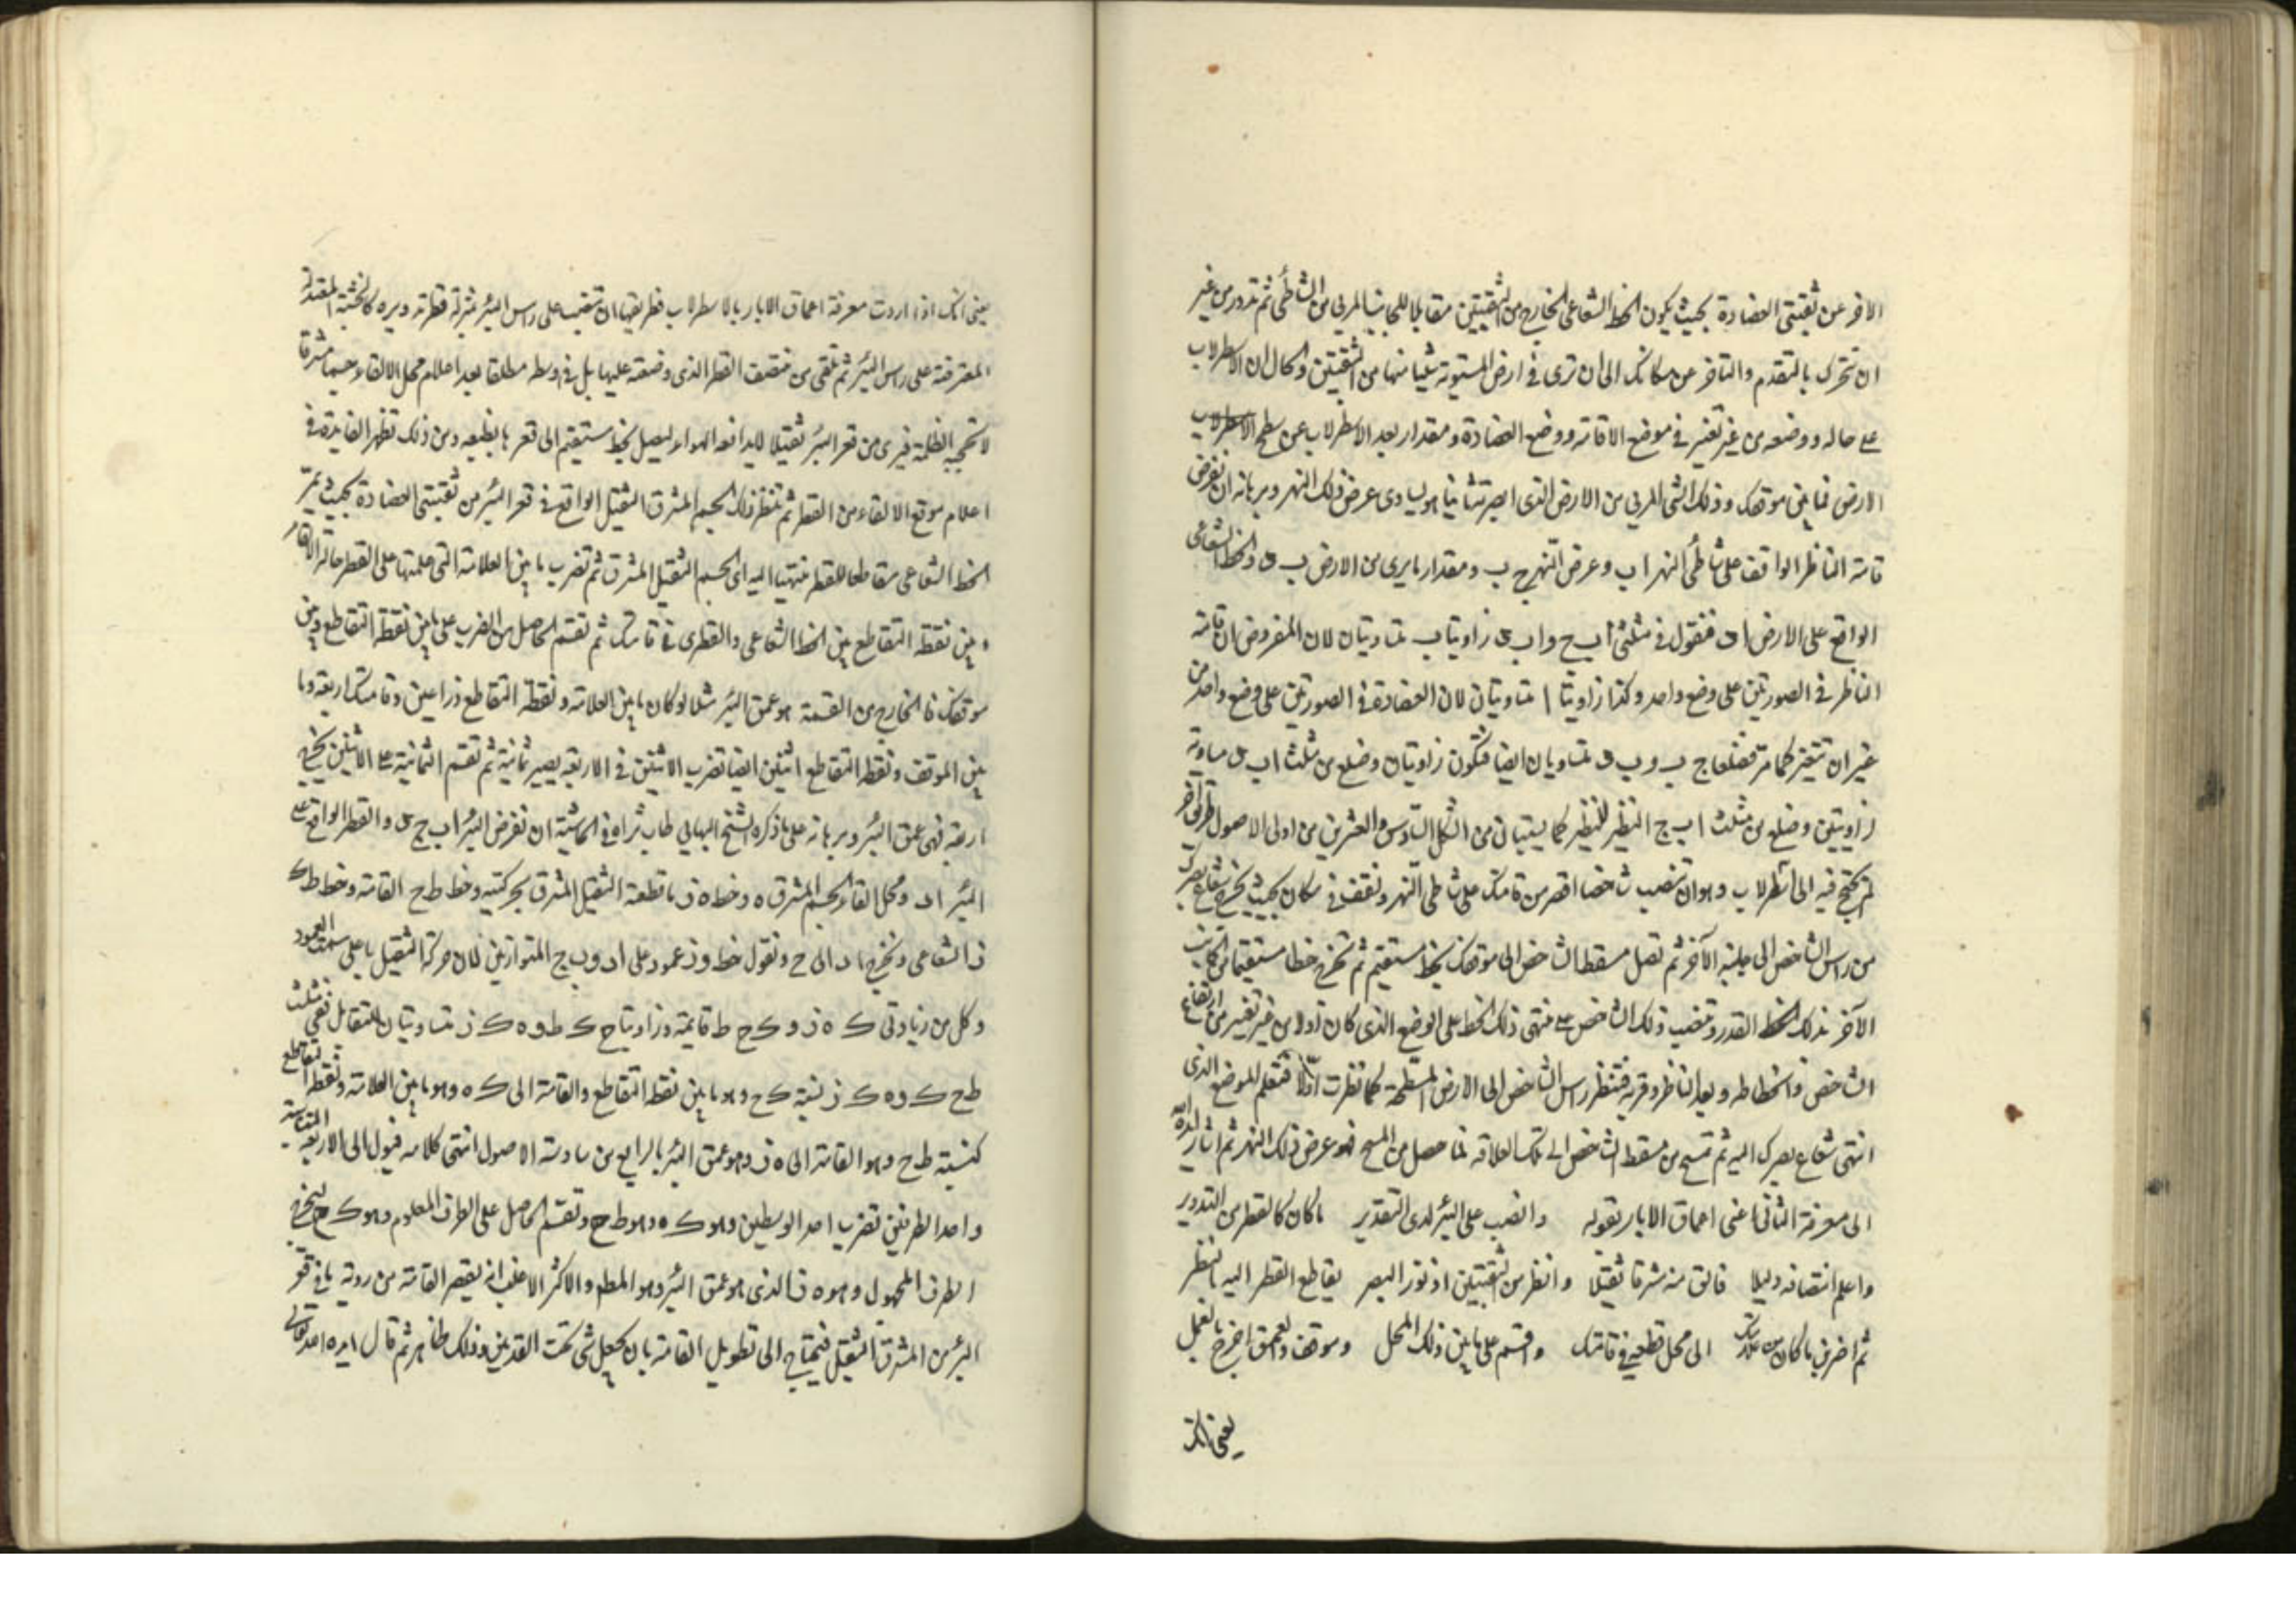 الاخر عن ثقبتي العضادة بحيث يكون الخط الشعاعي الخارج من الثقبتين مقابلا للجانب المرئي من الشاطئ ثم تدور من غير
ان تتحرك بالتقدم والتاخر عن مكانك الى ان ترى في ارض المستوية شيئا منها من الثقبتين والحال ان الاسطرلاب
على حاله ووضعه من غير تغير في موضع الاقامة ووضع العضادة ومقدار بعد الاسطرلاب عن سطح الاسطرلاب
الارض فما بين موقفك وذلك الشئ المرئي من الارض الذي ابصرته ثانيا هو يساوى عرض ذلك النهر وبرهانه ان نفرض
قامة الناظر الواقف على شاطئ النهر ا ب وعرض النهر ج ب ومقدار ما يرى من الارض ب ى والخط الشعاعى
الواقع على الارض ا ى فنقول في مثلثى ا ب ج و ا ب ى زاويتا ب متساويتان لان المفروض ان قامة
الناظر في الصورتين على وضع واحد وكذا زاويتا ا متساويتان لان العضادة في الصورتين على وضع واحد من
غير ان تتغير كما مر فضلعا ج ب و ب ى متساويان ايضا فتكون زاويتان وضلع من مثلث ا ب ى مساوية
زاويتين وضلع من مثلث ا ب ج النظير للنظير كما يستبان من الشكل السادس والعشرين من اولى الاصول طريق آخر
لم يحتج فيه الى اسطرلاب وهو ان تنصب شاخصا اقصر من قامتك على شاطئ النهر وتقف في مكان بحيث يخرج شعاع بصرك
من راس الشاخص الى جانبه الآخر ثم تصل مسقط الشاخص الى موقفك بخط مستقيم ثم تخرج خطا مستقيما من الجانب
الآخر بذلك الخط القدر وتنصب ذلك الشاخص على منتهى ذلك الخط على الوضع الذي كان اولا من غير تغيير من ارتفاع
الشاخص وانحطاطه وبعد الناظر وقربه فتنظر راس الشاخص الى الارض المسطحة كما نظرت اولا فتعلم الموضع الذي
انتهى شعاع بصرك اليه ثم تمسح من مسقط الشاخص الى تلك العلامة فما حصل من المسح فهو عرض ذلك النهر ثم اشار ايده الله
الى معرفة الثانى اعنى اعماق الابار بقوله وانصب على البئر لدى التقدير ما كان كالقطر من التدوير
واعلم انتصافه دليلا فالق منه مشرقا ثقيلا وانظر من الثقبتين اذ نور البصر يقاطع القطر اليه بالنظر
ثم اضرب ما كان من الى محل قطعه في قامتك واقسم على ما بين ذلك المحل وموقف والعمق اخرج بالعمل
يعنى انك
يعنى انك اذا اردت معرفة اعماق الابار بالاسطرلاب فطريقها ان تنصب على راس البئر بمنزلة قطر تدويره كالخشبة الممتدة
المعترضة على راس البئر ثم تلقى من منتصف القطر الذي وضعته عليها بل في وسطه مطلقا بعد اعلام محل الالقاء جسما مشرقا
لا تحجبه الظلمة فيرى من قعر البئر ثقيلا لا يدافعه الهواء ليصل بخط مستقيم الى قعرها بطبعه ومن ذلك تظهر الفايدة في
اعلام موقع الالقاء من القطر ثم تنظر ذلك الجسم المشرق الثقيل الواقع في قعر البئر من ثقبتي العضادة بحيث يمر
الخط الشعاعى مقاطعا للقطر منتهيا اليه اى الجسم الثقيل المشرق ثم تضرب ما بين العلامة التي علمتها على القطر حالة الالقاء
وبين نقطة التقاطع بين الخط الشعاعى والقطرى في قامتك ثم تقسم الحاصل من الضرب على ما بين نقطة التقاطع وبين
موقفك فالخارج من القسمة هو عمق البئر مثلا لو كان ما بين العلامة ونقطة التقاطع ذراعين وقامتك اربعة وما
بين الموقف ونقطة التقاطع اثنين ايضا تضرب الاثنين في الاربعة يصير ثمانية ثم تقسم الثمانية على الاثنين يخرج
اربعة فهى عمق البئر وبرهانه على ما ذكره الشيخ البهائي طاب ثراه في الحاشية ان نفرض البئر ا ب ج د والقطر الواقع على
البئر ا د ومحل القاء الجسم المشرق ه وخط ه ز ما قطعه الثقيل المشرق بحركته وخط ط ح القامة وخط ط ك
ز الشعاعى ونخرج ا د الى ح ونقول خط ه ز عمود على ا د و ب ج المتوازيين لان حركة الثقيل ما على سمت العمود
وكل من زاويتى ك ه ز و ك ح ط قايمة وزاويتا ح ك ط و ه ك ز متساويتان للتقابل ففى مثلث
ط ح ك و ه ك ز نسبة ك ح وهو ما بين نقطة التقاطع والقامة الى ك ه وهو ما بين العلامة ونقطة التقاطع
كنسبة ط ح وهو القامة الى ه ز وهو عمق البئر بالرابع من سادسة الاصول انتهى كلامه فيول الى الاربعة المتناسبة
واحد الطرفين تضرب احد الوسطين وهو ك ه وهو ط ح وتقسم الحاصل على الطرف المعلوم وهو ك ح ليخرج
الطرف المجهول وهو ه ز الذي هو عمق البئر وهو المط والاكثر الاغلب انه يقصر القامة من روية ما في قعر
البئر من المشرق الثقيل فيحتاج الى تطويل القامة بان يجعل شئ تحت القدمين وذلك ظاهر ثم قال ايده الله تعالى